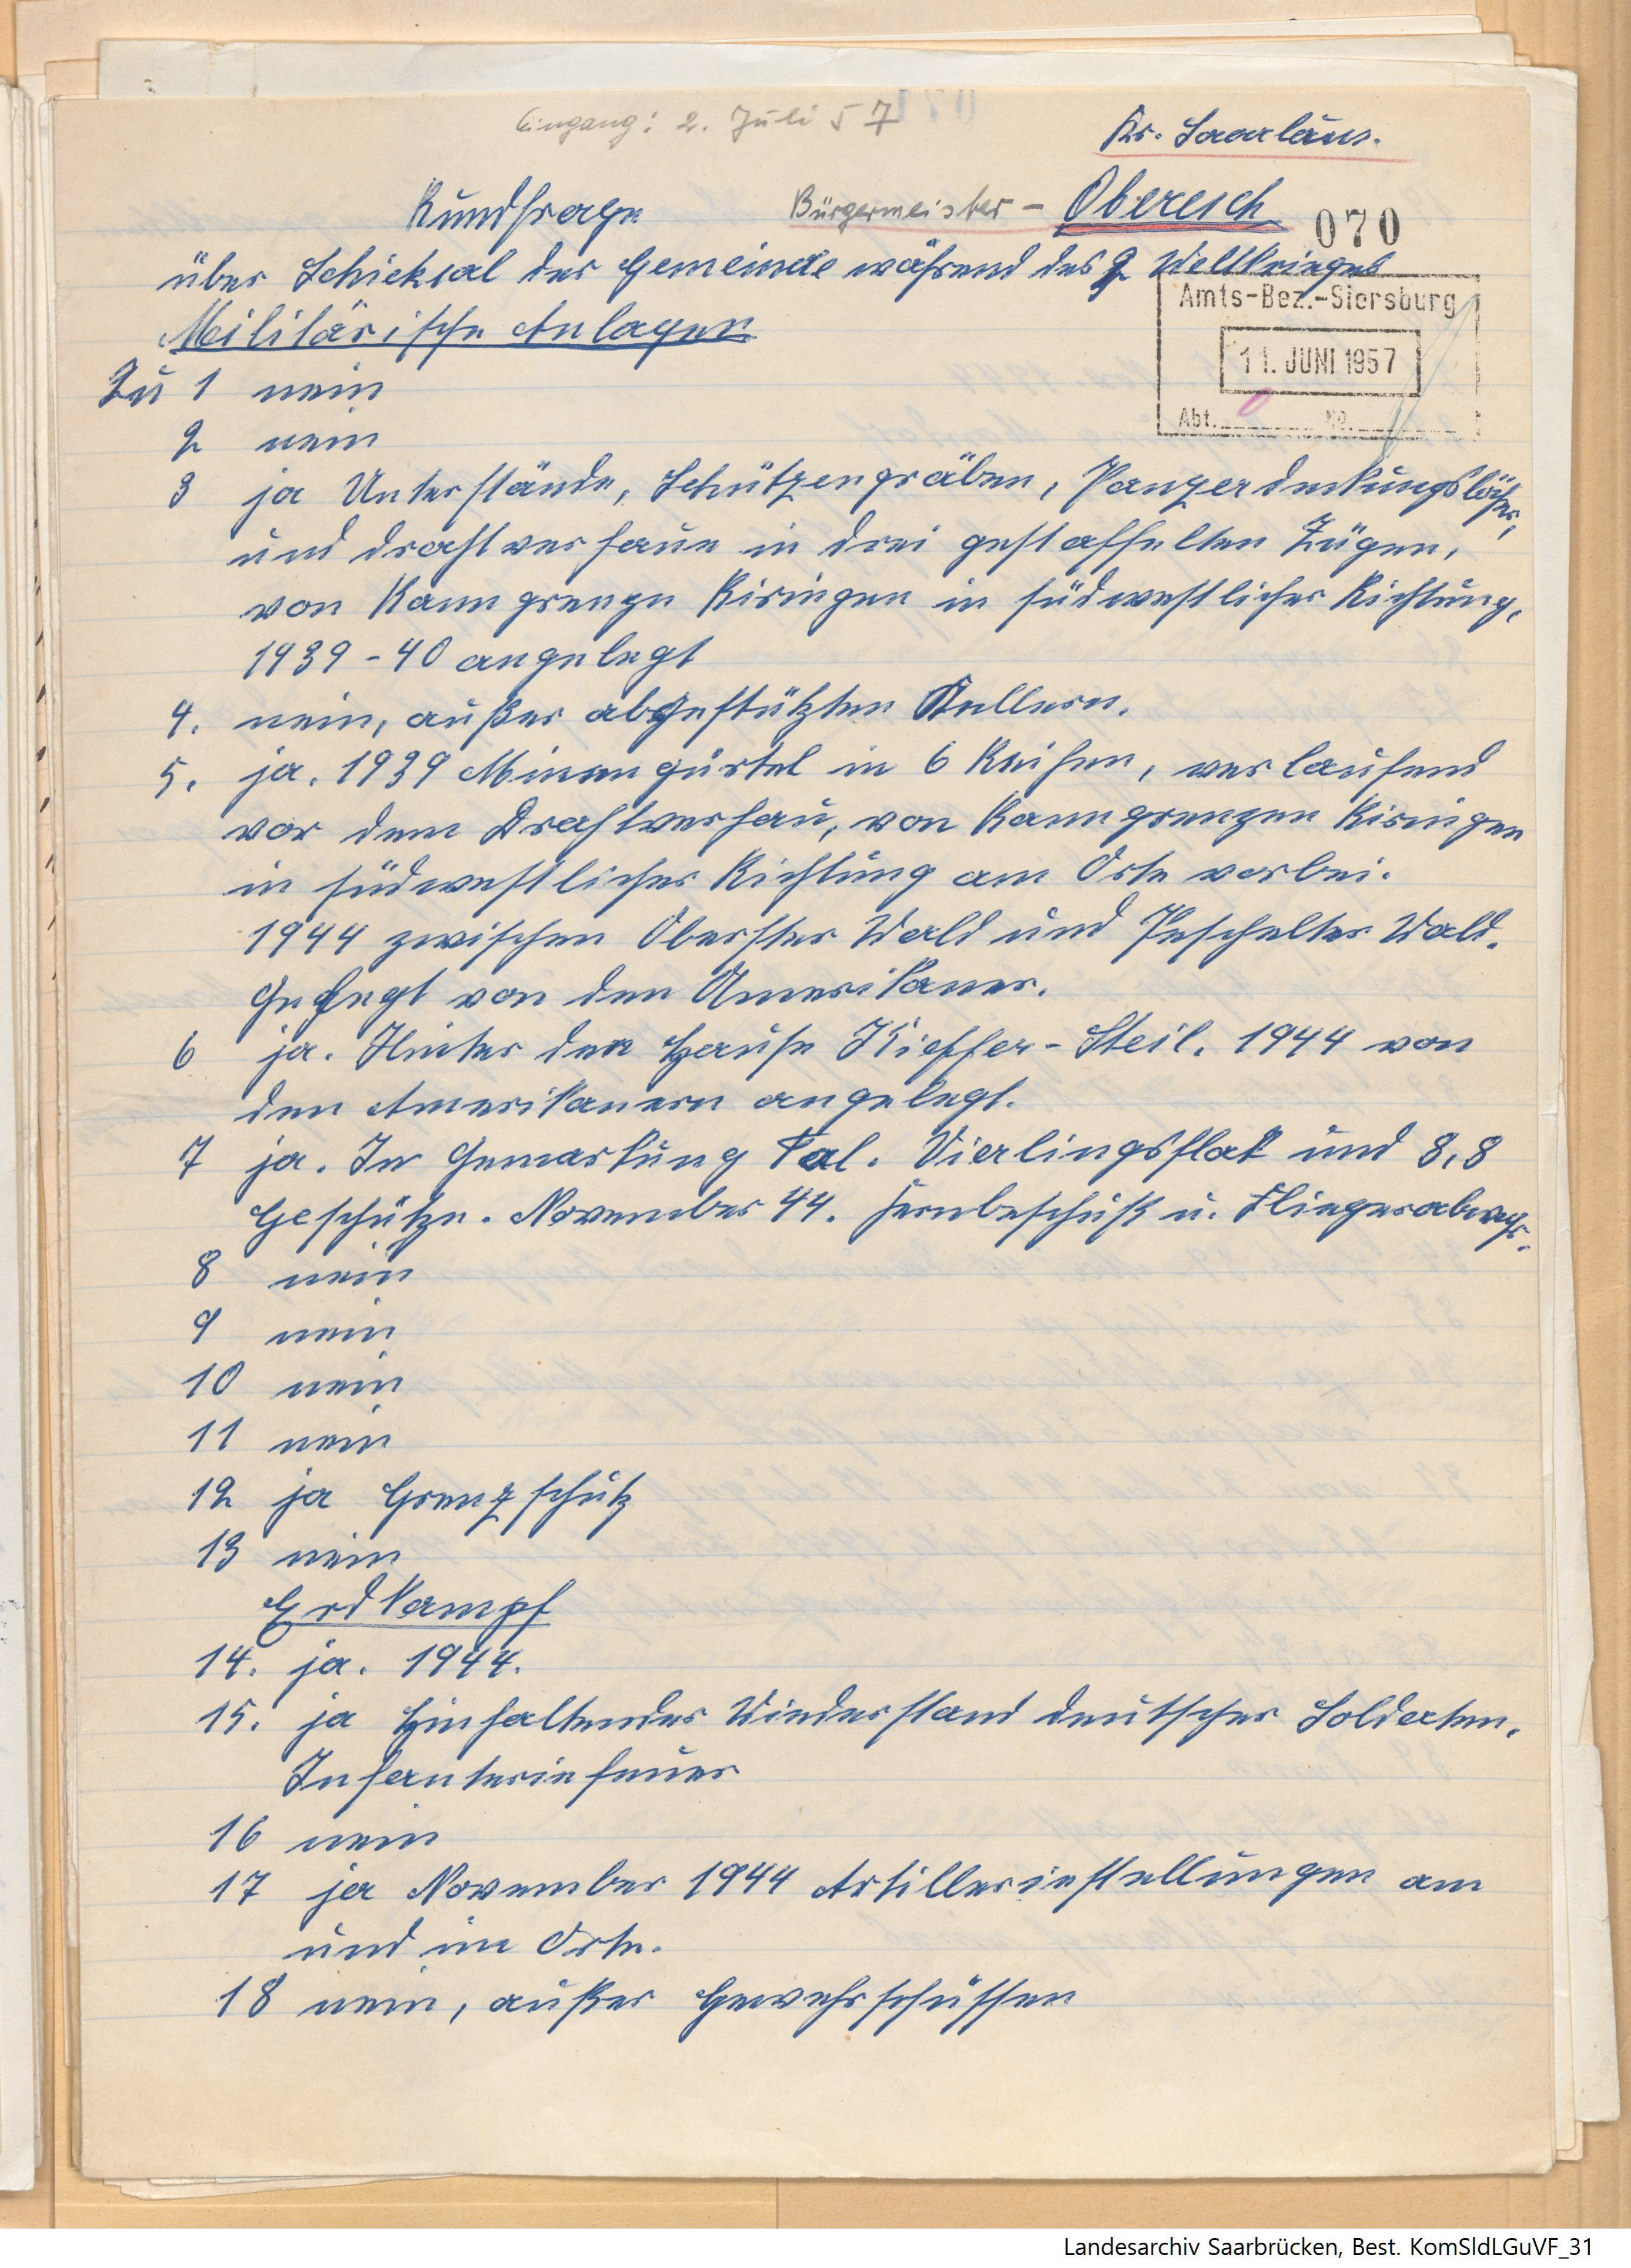 Eingang: 2. Juli 57
Kr. Saarlaus.
Rundfrage
Bürgermeister - Oberesch
070
über Schicksal der Gemeinde während des 2 Weltkrieges
Amts-Bez.-Siersburg
11. JUNI 1957
Abt. No.
Militärische Anlagen
Zu 1 nein
2 nein
3 ja Unterstände, Schützengräben, Panzerdeckungslöcher,
und drahtverhaue in drei gestaffelten Zügen,
von Banngrenze Biringen in südwestlicher Richtung,
1939-40 angelegt
4. nein, außer abgestützten Kellern.
5. ja. 1939 Minengürtel in 6 Reihen, verlaufend
vor dem Drahtverhau, von Banngrenzen Biringen
in südwestlicher Richtung am Orte vorbei.
1944 zwischen Oberster Wald und Wald.
Gelegt von den Amerikaner.
6 ja. Hinter den Hause Kieffer-Steil. 1944 von
den Amerikanern angelegt.
7 ja. In Gemarkung Tal. Vierlingsflak und 8,8
Geschütze. November 44. Fernbeschuß u. Fliegerabwehr.
8 nein
9 nein
10 nein
11 nein
12 ja Grenzschutz
13 nein
Erdkampf
14. ja. 1944.
15. ja Hinhaltender Wiederstand deutscher Soldaten.
Infanteriefeuer
16 nein
17 ja November 1944 Artilleriestellungen am
und im Orte.
18 nein, außer Gewehrschüssen
Landesarchiv Saarbrücken, Best. KomSldLGuVF_31